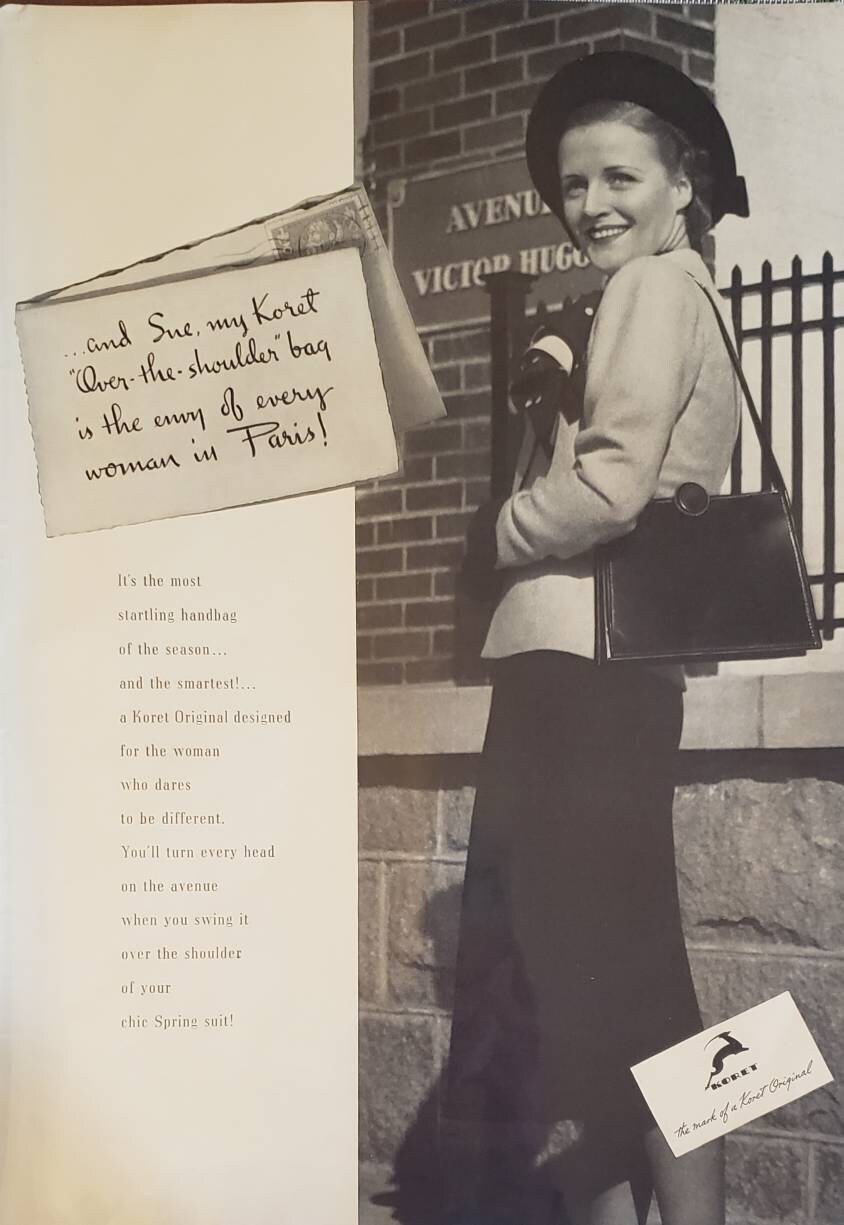 ...and Sue, my Koret
"Over-the-shoulder" bag
is the envy of every
woman in Paris!
AVENU
VICTOR HUGO
It's the most
startling handbag
of the season...
and the smartest!...
a Koret Original designed
for the woman
who dares
to be different.
You'll turn every head
on the avenue
when you swing it
over the shoulder
of your
chic Spring suit!
KORET
the mark of a Koret Original